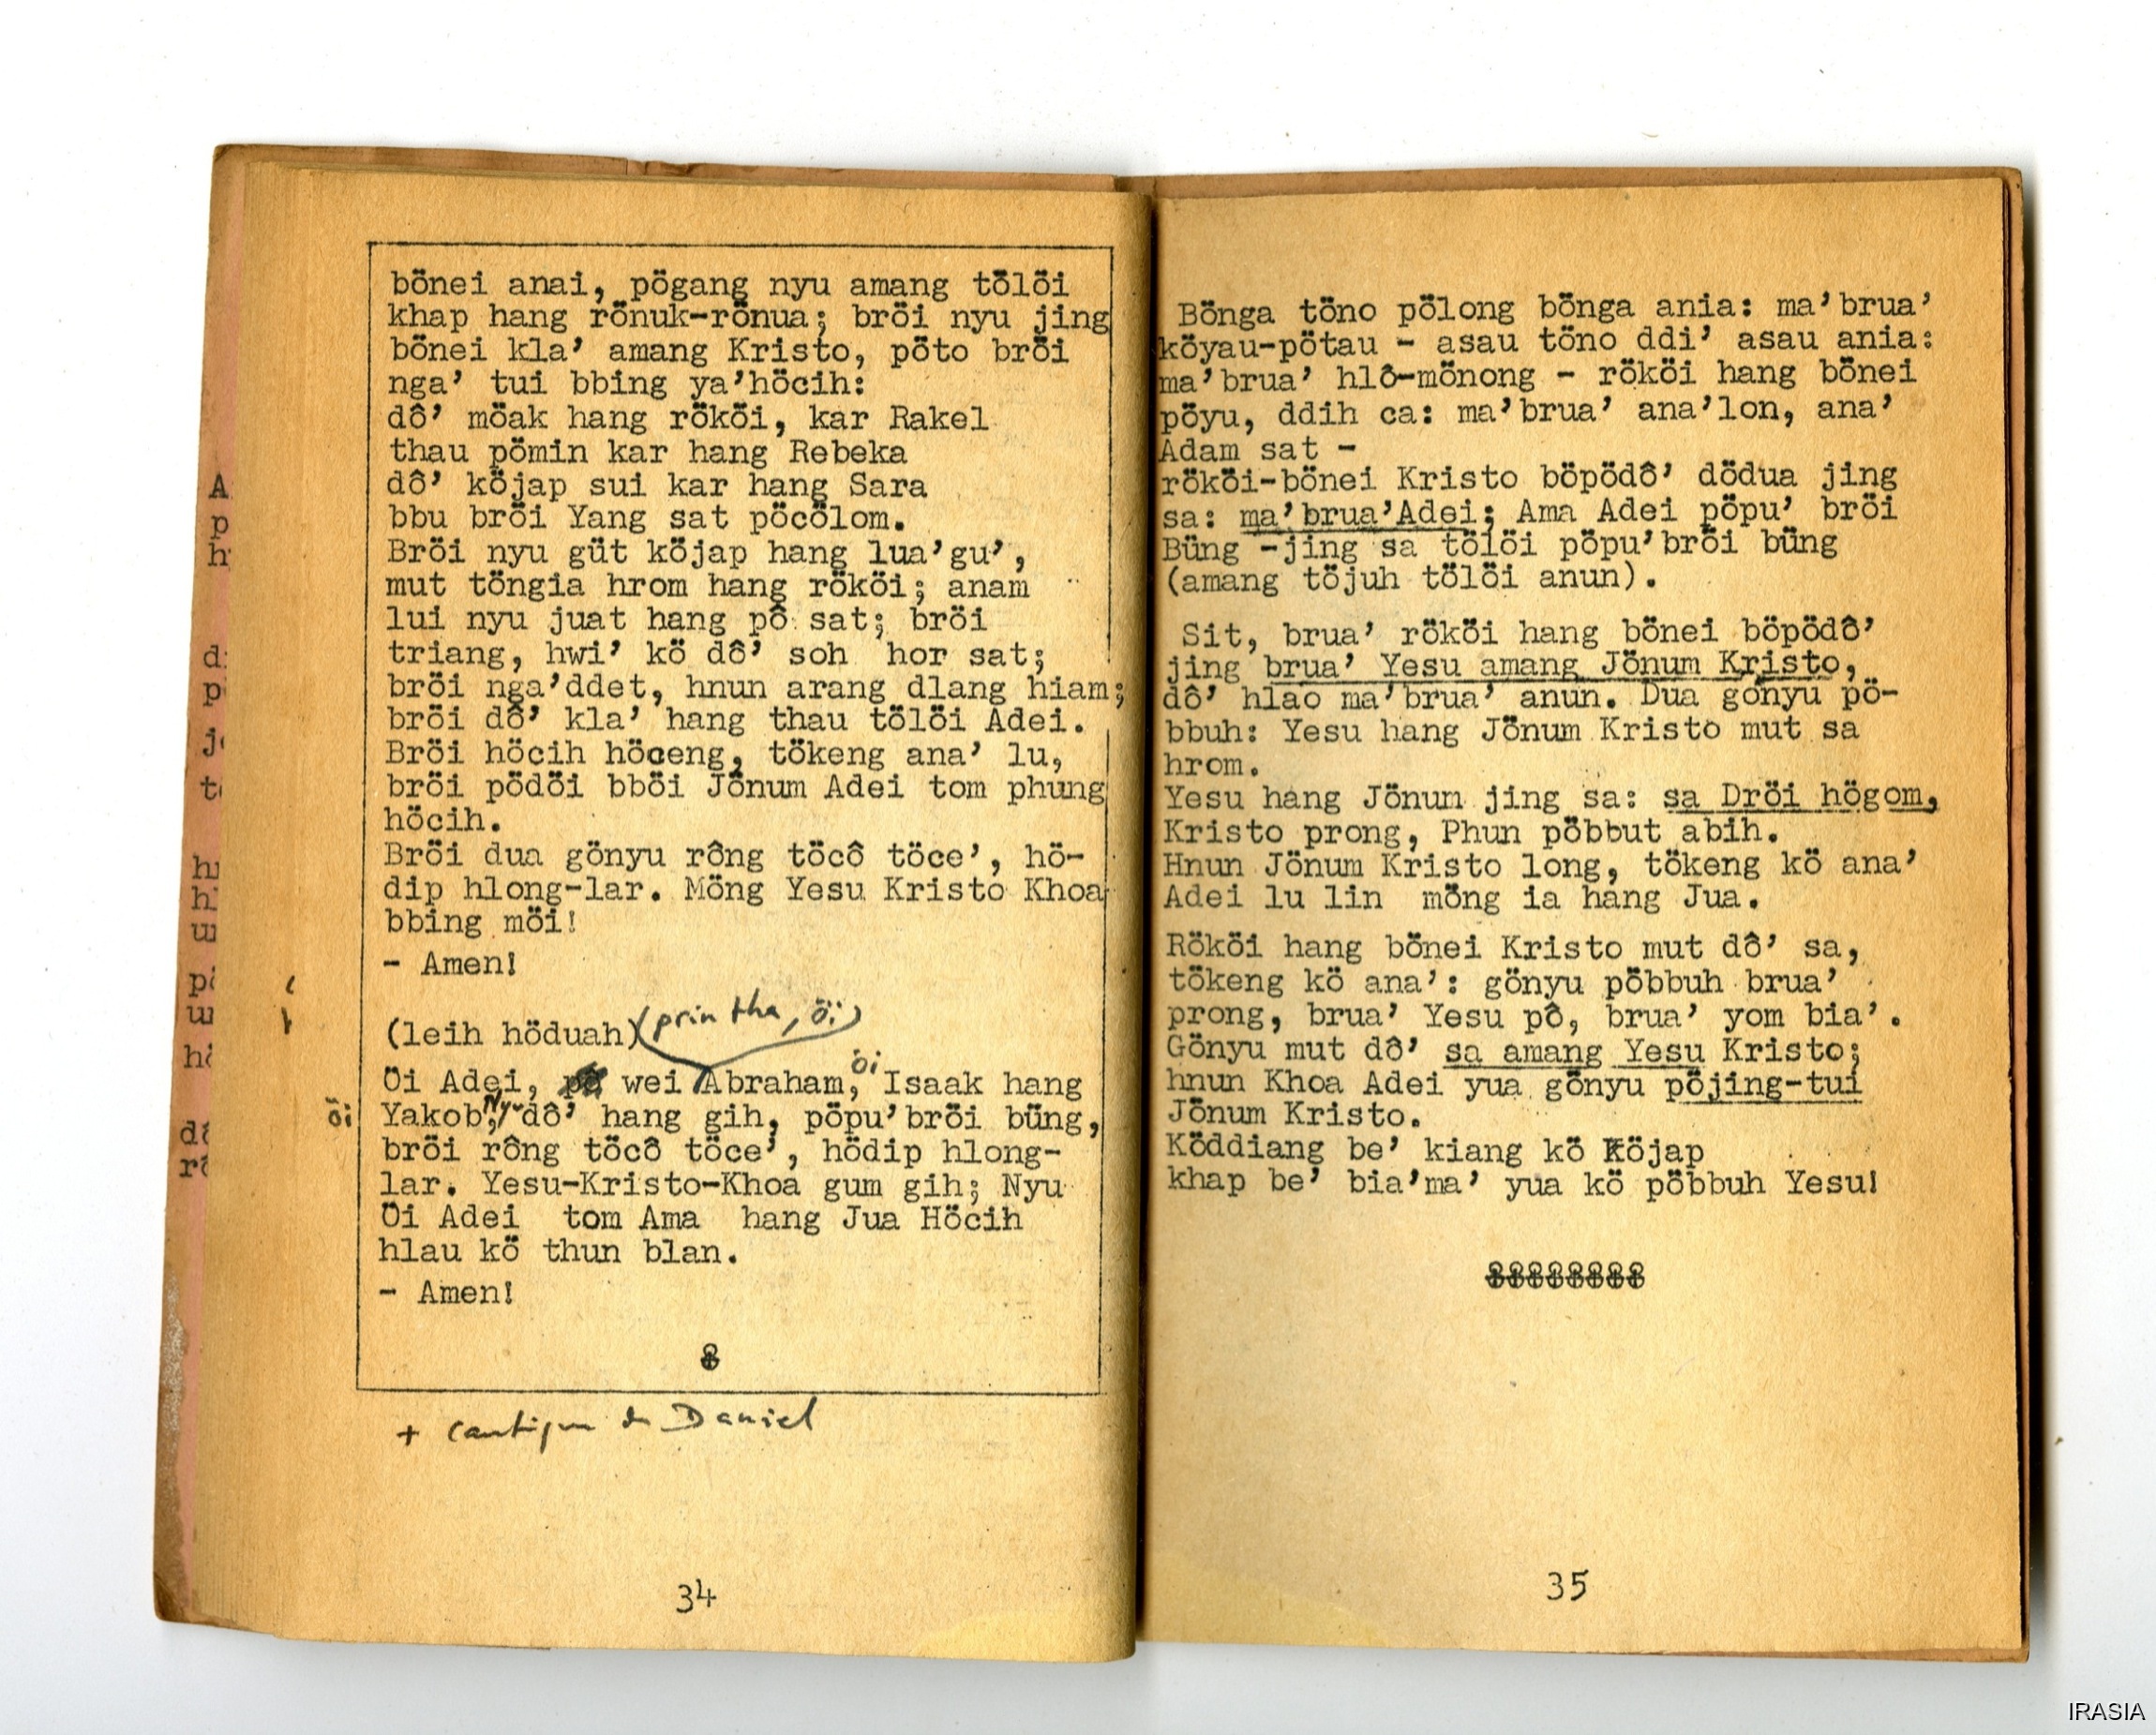 bönei anai, pögang nyu amang tölöi
khap hang rönuk-rönua; bröi nyu jing
bönei kla’ amang Kristo, pöto bröi
nga’ tui bbing ya’höcih:
dô’ möak hang rököi, kar Rakel
thau pömin kar hang Rebeka
dô’ köjap sui kar hang Sara
bbu bröi Yang sat pöcölom.
Bröi nyu güt köjap hang lua’gu’,
mut töngia hrom hang rököi; anam
lui nyu juat hang pô sat; bröi
triang, hwi’ kö dô’ soh hor sat;
bröi nga’ddet, hnun arang dlang hiam;
bröi dô’ kla’ hang thau tölöi Adei.
Bröi höcih höceng, tökeng ana’ lu,
bröi pödöi bböi Jönum Adei tom phung
höcih.
Bröi dua gönyu rông töcô töce’, hö-
dip hlong-lar. Möng Yesu Kristo Khoa
bbing möi!
- Amen!
(leih höduah) (prin tha, öi)
öi
Öi Adei, wei Abraham, Isaak hang
öi Yakob, Nyu dô’ hang gih, pöpu’bröi büng,
bröi rông töcô töce’, hödip hlong-
lar. Yesu-Kristo-Khoa gum gih; Nyu
Öi Adei tom Ama hang Jua Höcih
hlau kö thun blan.
- Amen!
+ cantique de Daniel
34
Bönga töno pölong bönga ania: ma’brua’
köyau-pötau - asau töno ddi’ asau ania:
ma’brua’ hlô-mönong - rököi hang bönei
pöyu, ddih ca: ma’brua’ ana’lon, ana’
Adam sat -
rököi-bönei Kristo böpödô’ dödua jing
sa: ma’brua’Adei; Ama Adei pöpu’ bröi
Büng -jing sa tölöi pöpu’bröi büng
(amang töjuh tölöi anun).
Sit, brua’ rököi hang bönei böpödô’
jing brua’ Yesu amang Jönum Kristo,
dô’ hlao ma’brua’ anun. Dua gönyu pö-
bbuh: Yesu hang Jönum Kristo mut sa
hrom.
Yesu hang Jönum jing sa: sa Dröi högom,
Kristo prong, Phun pöbbut abih.
Hnun Jönum Kristo long, tökeng kö ana’
Adei lu lin möng ia hang Jua.
Rököi hang bönei Kristo mut dô’ sa,
tökeng kö ana’: gönyu pöbbuh brua’
prong, brua’ Yesu pô, brua’ yom bia’.
Gönyu mut dô’ sa amang Yesu Kristo;
hnun Khoa Adei yua gönyu pöjing-tui
Jönum Kristo.
Köddiang be’ kiang kö Köjap
khap be’ bia’ma’ yua kö pöbbuh Yesu!
35
IRASIA